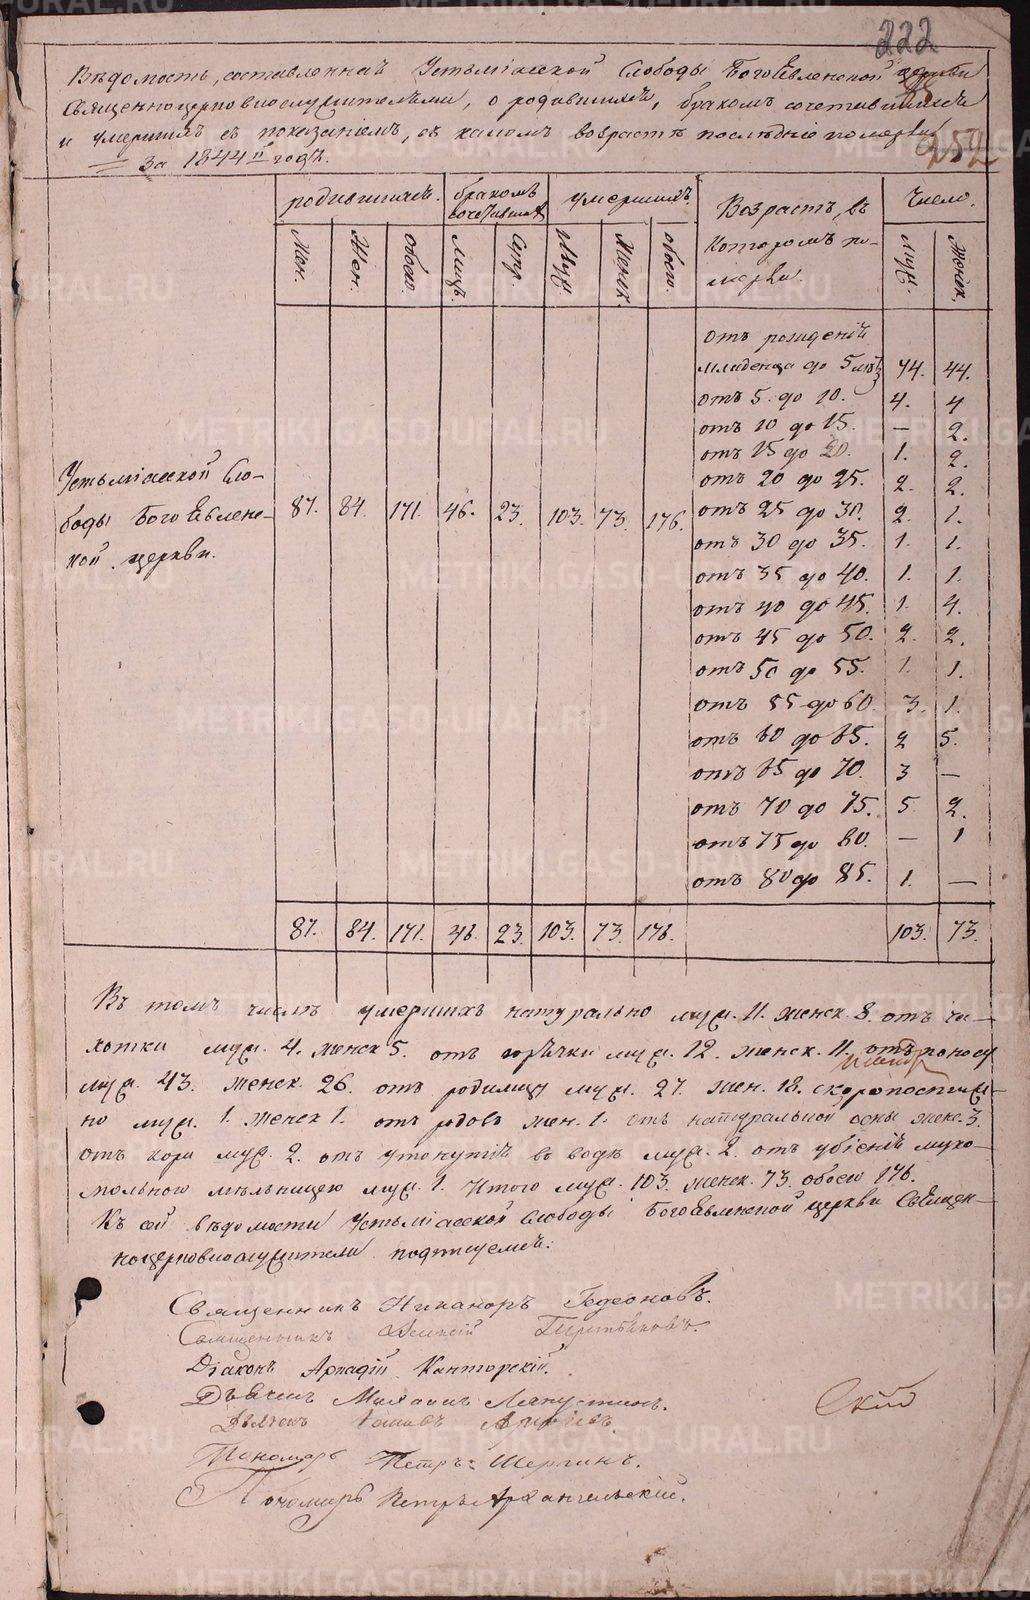 222
Вѣдомость, составленная Устьміасской Слободы БогоЯвленской церкви
Священноцерковнослужителями, о родившихся, бракомъ сочетавшихся
и умершихъ съ показаніемъ, въ какомъ возрастѣ послѣдніе померли
252
за 1844й годъ.
родившихся. бракомъ сочетавшихся умершихъ. Возрастъ, въ которомъ померли. Число.
Муж. Жен. обоего. Лицъ. Супр. Муж. Женск. обоего. Муж. Женск.
отъ рожденія
младенца до 5 лѣтъ 74. 44.
отъ 5. до 10. 4. 4
отъ 10 до 15. — 2.
отъ 15 до 20. 1. 2.
отъ 20 до 25. 2. 2.
Устьміасской Сло-
боды БогоЯвленс-
кой церкви.
87. 84. 171. 46. 23. 103. 73. 176.
отъ 25 до 30. 2. 1.
отъ 30 до 35. 1. 1.
отъ 35 до 40. 1. 1.
отъ 40 до 45. 1. 4.
отъ 45 до 50. 2. 2.
отъ 50 до 55. 1. 1.
отъ 55 до 60. 3. 1.
отъ 60 до 65. 2 5.
отъ 65 до 70. 3 —
отъ 70 до 75. 5 2.
отъ 75 до 80. — 1
отъ 80 до 85. 1. —
87. 84. 171. 46. 23. 103. 73. 176. 103. 73.
Въ томъ числѣ умершихъ натурально муж. 11. женск. 8. отъ ча-
хотки муж. 4. женск 5. отъ горячки муж. 12. женск. 11. отъ поносу
муж. 43. женск. 26. отъ родимца муж. 27. жен. 18. скоропостиж-
но муж. 1. женск 1. отъ родовъ жен. 1. отъ натуральной оспы женс. 3.
отъ кори муж. 2. отъ утонутія въ водѣ муж. 2. отъ убіенія муко-
мольною мѣльницею муж. 1. Итого муж. 103. женск. 73. обоего 176.
Къ сей вѣдомости Устьміасской Слободы БогоЯвленской церкви Священ-
ноцерковнослужители подписуемся:
Священникъ Никаноръ Гедеоновъ.
Священникъ Алексій
Діаконъ Аркадій Канторскій.
Дьячекъ Михаилъ Лепустинъ.
Дьячекъ
Пономарь Петръ Шергинъ.
Пономарь Петръ Архангельскій.
METRIKI.GASO-URAL.RU